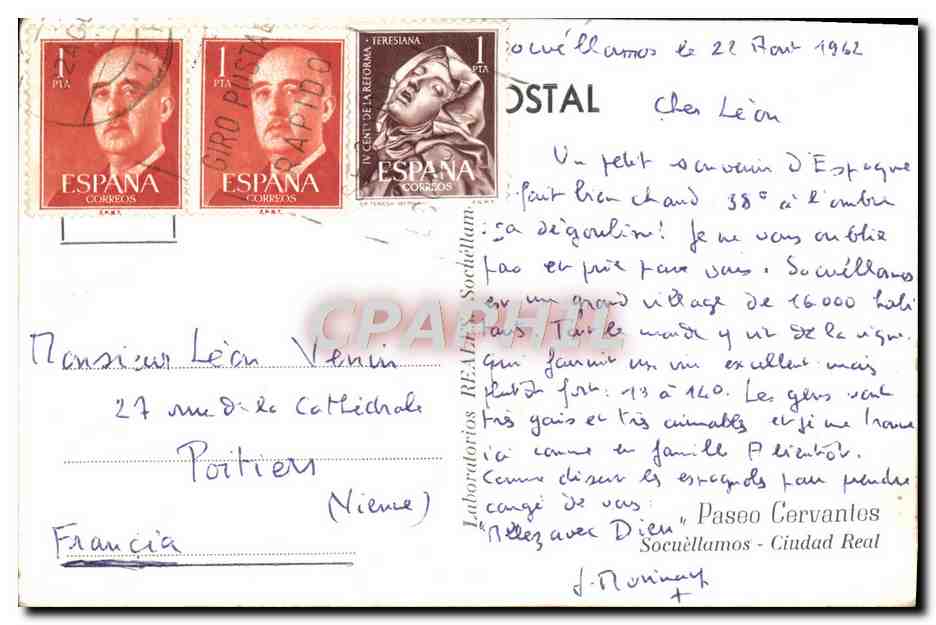 1
PTA
ESPAÑA
CORREOS
F.N.M.T.
1
PTA
ESPAÑA
CORREOS
F.N.M.T.
IV CENTº DE LA REFORMA TERESIANA
1
PTA
ESPAÑA
CORREOS
GIRO POSTAL
RAPIDO
OSTAL
Socuéllamos le 22 Aout 1962
Cher Léon
Un petit souvenir d'Espagne
fait bien chaud 38° à l'ombre
ça dégouline! Je ne vous oublie
pas et prie pour vous. Socuéllamos
est un grand village de 16.000 habi
tans. Tout le monde y vit de la vigne.
qui fournit un vin excellent mais
plutôt fort: 13 à 14°. Les gens sont
très gais et très aimables et je me trouve
ici comme en famille A bientôt.
Comme disent les espagnols pour prendre
congé de vous:
"Allez avec Dieu"
Paseo Cervantes
Socuèllamos - Ciudad Real
Laboratorios REALEX Sochéllam
CPAPHIL
Monsieur Léon Venin
27 rue de la Cathédrale
Poitiers
(Vienne)
Francia